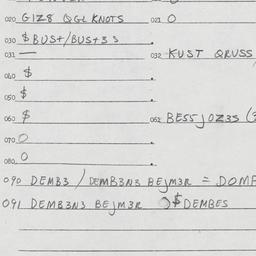 020 GIZ8 QGL KNOTS 021 O
030 $ BUST/BUST3 3
031 — 032 KUST QRUSS
040 $
050 $
060 $ 062 BE55JOZ3S (
070 O
080 O
090 DEMB3 / DEMB3N3 BEJM3R = DOMF
091 DEMB3N3 BEJM3R $ DEMBES